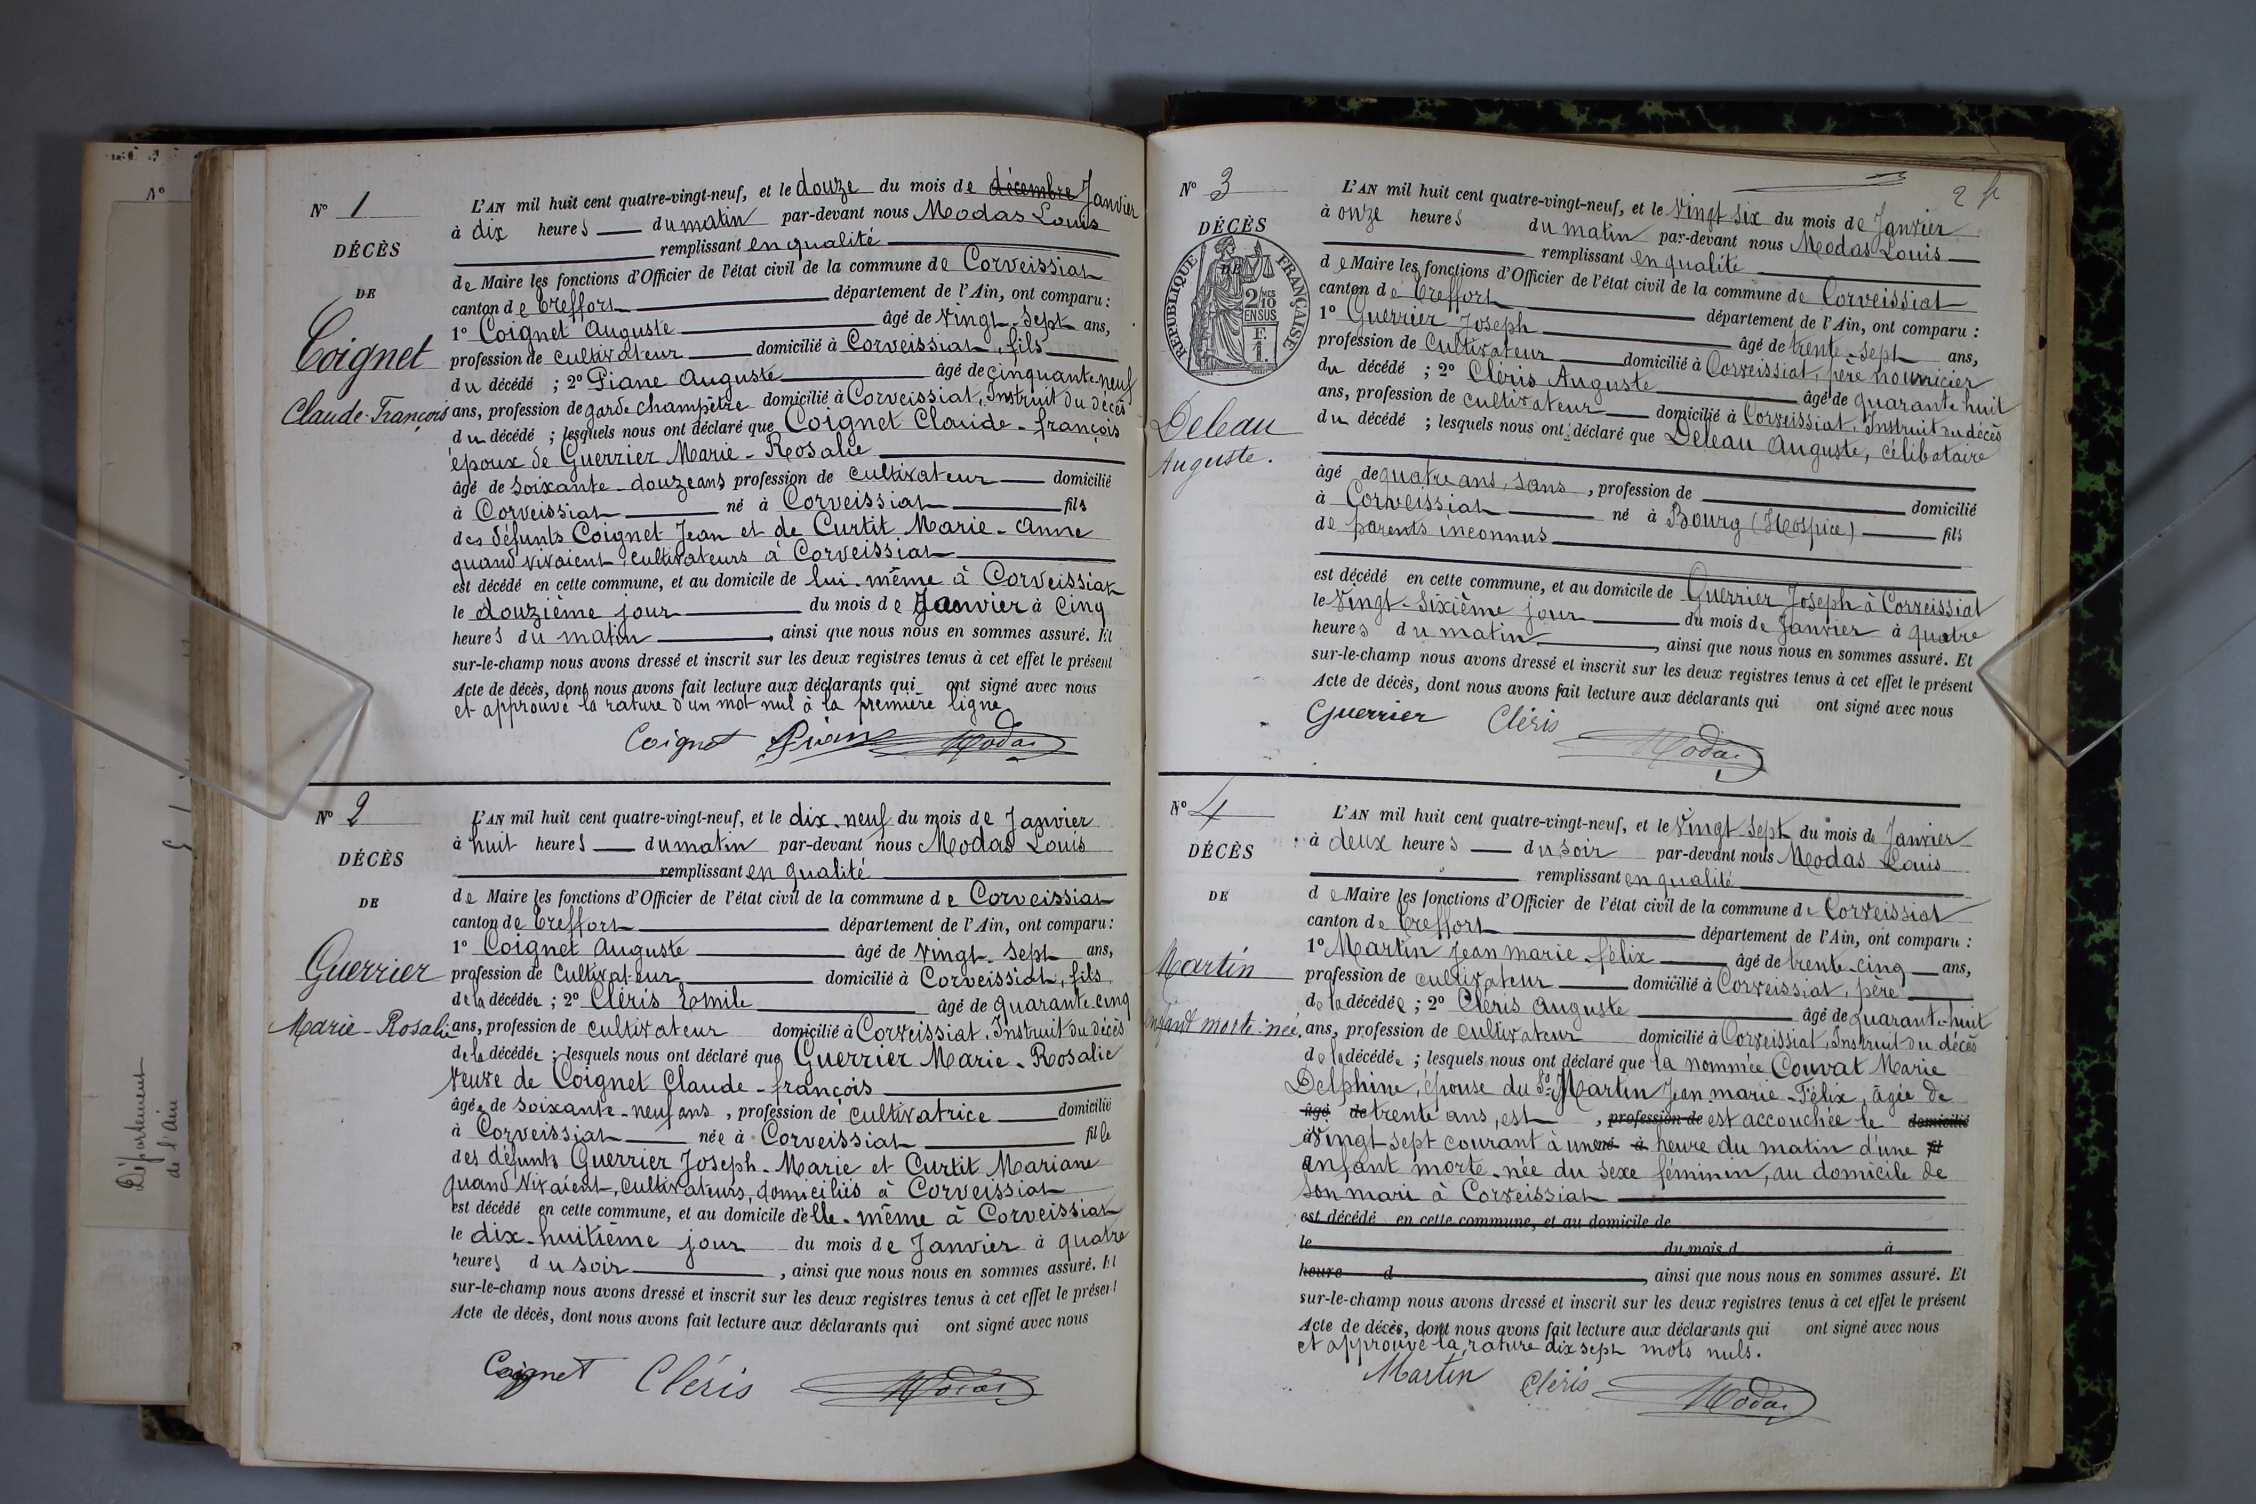 Département
de l'Ain
N°
N° 1
DÉCÈS
DE
Coignet
Claude-François
L'AN mil huit cent quatre-vingt-neuf, et le douze du mois de décembre Janvier
à dix heures du matin par-devant nous Modas Louis
remplissant en qualité
de Maire les fonctions d'Officier de l'état civil de la commune de Corveissiat
canton de Treffort département de l'Ain, ont comparu :
1° Coignet Auguste âgé de vingt-sept ans,
profession de cultivateur domicilié à Corveissiat, fils
du décédé ; 2° Piane Auguste âgé de cinquante-neuf
ans, profession de garde champêtre domicilié à Corveissiat, Instruit du décès
du décédé ; lesquels nous ont déclaré que Coignet Claude-françois
époux de Guerrier Marie-Rosalie
âgé de soixante-douze ans profession de cultivateur domicilié
à Corveissiat né à Corveissiat fils
des défunts Coignet Jean et de Curtit Marie-Anne
quand vivaient, cultivateurs à Corveissiat
est décédé en cette commune, et au domicile de lui-même à Corveissiat
le douzième jour du mois de Janvier à cinq
heures du matin, ainsi que nous nous en sommes assuré. Et
sur-le-champ nous avons dressé et inscrit sur les deux registres tenus à cet effet le présent
Acte de décès, dont nous avons fait lecture aux déclarants qui ont signé avec nous
et approuvé la rature d'un mot nul à la première ligne
Coignet Piane Modas
N° 2
DÉCÈS
DE
Guerrier
Marie-Rosalie
L'AN mil huit cent quatre-vingt-neuf, et le dix-neuf du mois de Janvier
à huit heures du matin par-devant nous Modas Louis
remplissant en qualité
de Maire les fonctions d'Officier de l'état civil de la commune de Corveissiat
canton de Treffort département de l'Ain, ont comparu :
1° Coignet Auguste âgé de vingt-sept ans,
profession de cultivateur domicilié à Corveissiat, fils
de la décédée ; 2° Cléris Emile âgé de quarante cinq
ans, profession de cultivateur domicilié à Corveissiat, Instruit du décès
de la décédée ; lesquels nous ont déclaré que Guerrier Marie-Rosalie
veuve de Coignet Claude-françois
âgée de soixante-neuf ans, profession de cultivatrice domicilié
à Corveissiat née à Corveissiat fille
des défunts Guerrier Joseph-Marie et Curtit Mariane
quand vivaient, cultivateurs, domiciliés à Corveissiat
est décédé en cette commune, et au domicile d'elle-même à Corveissiat
le dix-huitième jour du mois de Janvier à quatre
heures du soir, ainsi que nous nous en sommes assuré. Et
sur-le-champ nous avons dressé et inscrit sur les deux registres tenus à cet effet le présent
Acte de décès, dont nous avons fait lecture aux déclarants qui ont signé avec nous
Coignet Cléris Modas
2
N° 3
DÉCÈS
DE
RÉPUBLIQUE FRANÇAISE
2/10 EN SUS
F. 1.
Deleau
Auguste.
L'AN mil huit cent quatre-vingt-neuf, et le vingt six du mois de Janvier
à onze heures du matin par-devant nous Modas Louis
remplissant en qualité
de Maire les fonctions d'Officier de l'état civil de la commune de Corveissiat
canton de Treffort département de l'Ain, ont comparu :
1° Guerrier Joseph âgé de trente-sept ans,
profession de cultivateur domicilié à Corveissiat, père nourricier
du décédé ; 2° Cléris Auguste âgé de quarante huit
ans, profession de cultivateur domicilié à Corveissiat, Instruit du décès
du décédé ; lesquels nous ont déclaré que Deleau Auguste, célibataire
âgé de quatre ans, sans, profession de domicilié
à Corveissiat né à Bourg (Hospice) fils
de parents inconnus
est décédé en cette commune, et au domicile de Guerrier Joseph à Corveissiat
le vingt-sixième jour du mois de Janvier à quatre
heures du matin, ainsi que nous nous en sommes assuré. Et
sur-le-champ nous avons dressé et inscrit sur les deux registres tenus à cet effet le présent
Acte de décès, dont nous avons fait lecture aux déclarants qui ont signé avec nous
Guerrier Cléris Modas
N° 4
DÉCÈS
DE
Martin
enfant morte-née.
L'AN mil huit cent quatre-vingt-neuf, et le vingt-sept du mois de Janvier
à deux heures du soir par-devant nous Modas Louis
remplissant en qualité
de Maire les fonctions d'Officier de l'état civil de la commune de Corveissiat
canton de Treffort département de l'Ain, ont comparu :
1° Martin Jean marie-félix âgé de trente-cinq ans,
profession de cultivateur domicilié à Corveissiat, père
de la décédée ; 2° Cléris Auguste âgé de quarante-huit
ans, profession de cultivateur domicilié à Corveissiat, Instruit du décès
de la décédée ; lesquels nous ont déclaré que la nommée Couvat Marie
Delphine, épouse du Sr Martin Jean-marie-Félix, âgée de
âgé de trente ans, est, profession de est accouchée le domicilié
à vingt sept courant à une né à heure du matin d'une fil
enfant morte-née du sexe féminin, au domicile de
son mari à Corveissiat
est décédé en cette commune, et au domicile de
le du mois d à
heure d, ainsi que nous nous en sommes assuré. Et
sur-le-champ nous avons dressé et inscrit sur les deux registres tenus à cet effet le présent
Acte de décès, dont nous avons fait lecture aux déclarants qui ont signé avec nous
et approuvé la rature dix sept mots nuls.
Martin Cléris Modas